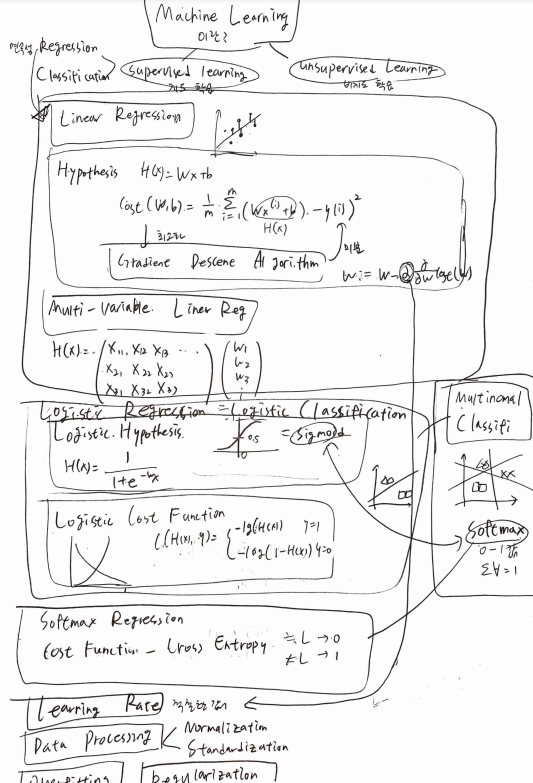 Machine Learning
이란?
연속성, Regression
Classification
Supervised learning
지도 학습
Unsupervised Learning
비지도 학습
Linear Regression
Hypothesis H(x) = Wx+b
Cost (W,b) = 1/m · Σ i=1 m (Wx(i)+b) - y(i))²
H(x)
최소화
미분
Gradiene Descene Algorithm
W := W - α ∂/∂W Cost(W)
Multi-Variable. Liner Reg
H(x) = ( X11, X12 X13 ... ) ( W1 )
X21 X22 X23 W2
X31 X32 X33 W3
Logistic Regression = Logistic Classification
Logistic. Hypothesis.
0.5
0
= Sigmoid
H(x) = 1 / 1+e^-wx
Multinomal
Classifi
Softmax
0~1 값
Σy = 1
Logistic Cost Function
C(H(x), y) = { -log(H(x)) y=1
-log(1-H(x)) y=0
Softmax Regression
Cost Function - Cross Entropy. ≒ L → 0
≠ L → 1
Learning Rate
Data Processing
Normalization
Standardization
Overfitting
Regularization